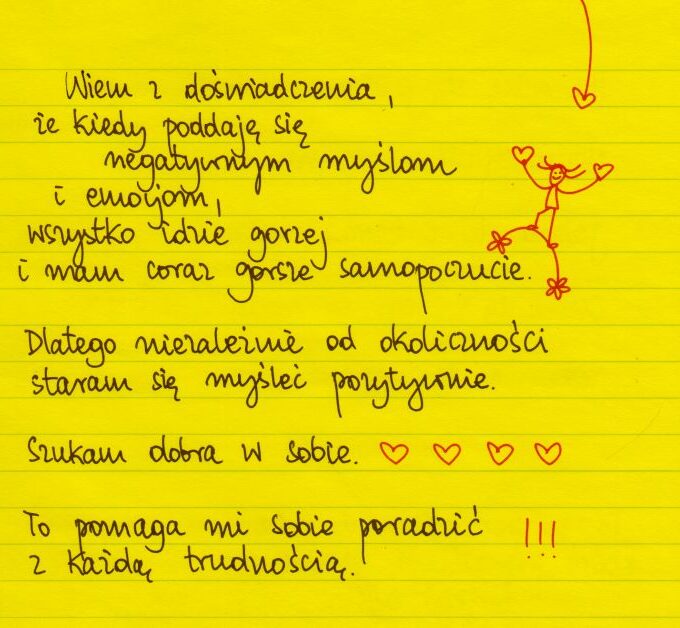 Wiem z doświadczenia,
że kiedy poddaję się
negatywnym myślom
i emocjom,
wszystko idzie gorzej
i mam coraz gorsze samopoczucie.
Dlatego niezależnie od okoliczności
staram się myśleć pozytywnie.
Szukam dobra w sobie. ♡ ♡ ♡ ♡
To pomaga mi sobie poradzić !!!
z każdą trudnością.